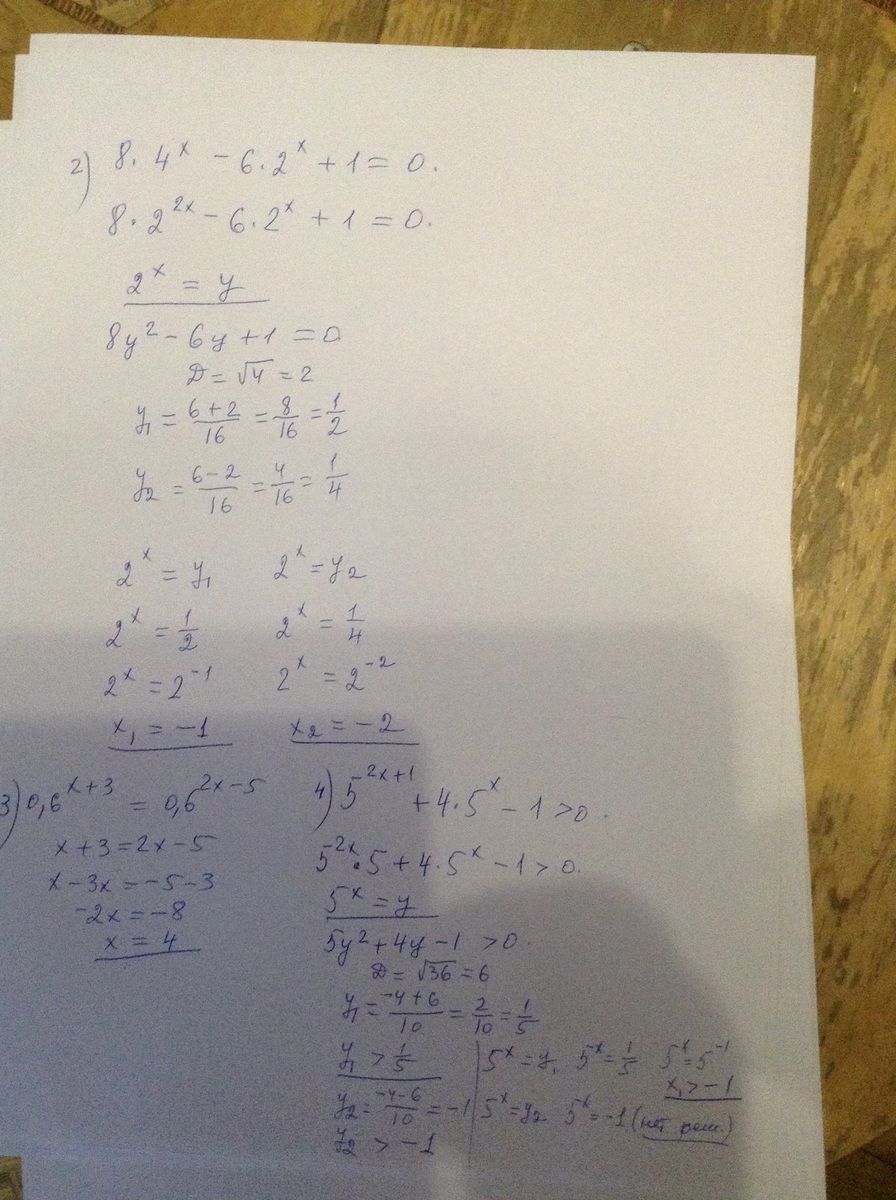 2) 8·4^x − 6·2^x + 1 = 0.
8·2^{2x} − 6·2^x + 1 = 0.
2^x = y
8y² − 6y + 1 = 0
D = √4 = 2
y₁ = (6+2)/16 = 8/16 = 1/2
y₂ = (6−2)/16 = 4/16 = 1/4
2^x = y₁ 2^x = y₂
2^x = 1/2 2^x = 1/4
2^x = 2^{−1} 2^x = 2^{−2}
x₁ = −1 x₂ = −2
3) 0,6^{x+3} = 0,6^{2x−5}
x + 3 = 2x − 5
x − 3x = −5 − 3
−2x = −8
x = 4
4) 5^{2x+1} + 4·5^x − 1 > 0.
5^{2x}·5 + 4·5^x − 1 > 0.
5^x = y
5y² + 4y − 1 > 0.
D = √36 = 6
y₁ = (−4+6)/10 = 2/10 = 1/5
y₁ > 1/5
y₂ = (−4−6)/10 = −1
y₂ > −1
5^x = y₁ 5^x = 1/5 5^x = 5^{−1}
x₁ > −1
5^x = y₂ 5^x = −1 (нет реш.)